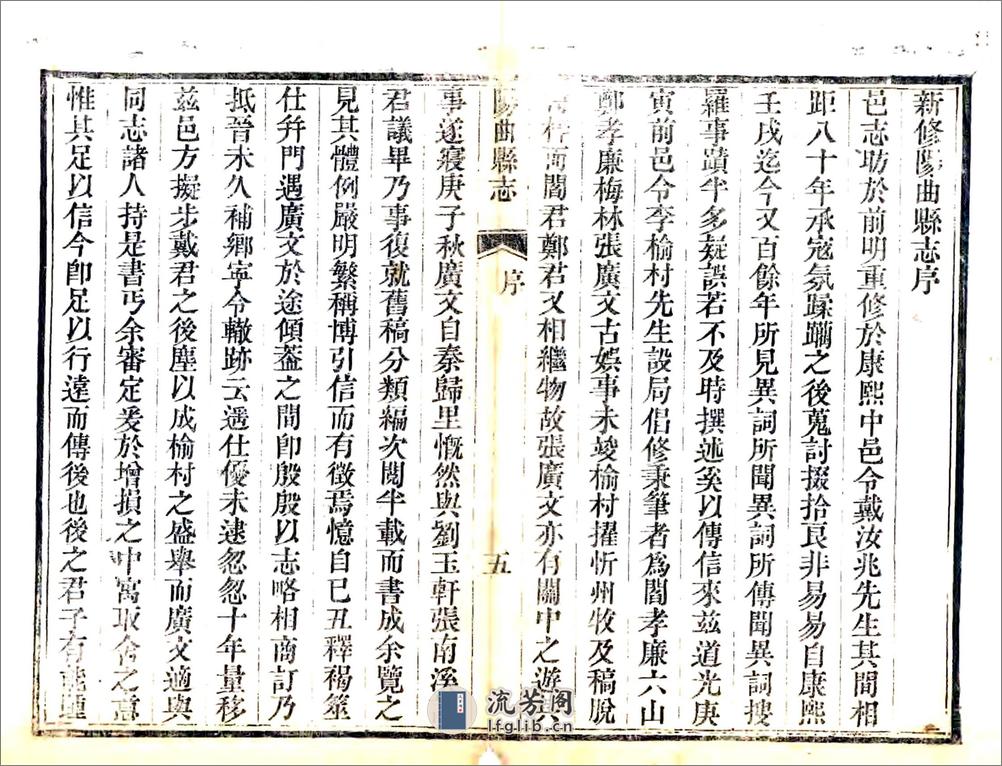 新修陽曲縣志序
邑志昉於前明重修於康熙中邑令戴汝兆先生其間相
距八十年承寇氛蹂躪之後蒐討掇拾良非易易自康熙
壬戌迄今又百餘年所見異詞所聞異詞所傳聞異詞搜
羅事蹟半多疑誤若不及時撰述奚以傳信來茲道光庚
寅前邑令李榆村先生設局倡修秉筆者為閻孝廉六山
鄭孝廉梅林張廣文古娛事未竣榆村擢忻州牧及稿脫
而閻君鄭君又相繼物故張廣文亦有關中之遊
陽曲縣志
序
五
事遂寢庚子秋廣文自秦歸里慨然與劉玉軒張南溪
君議畢乃事復就舊稿分類編次閱半載而書成余覽之
見其體例嚴明繁稱博引信而有徵焉憶自己丑釋褐筮
仕幷門遇廣文於途傾葢之間卽殷殷以志略相商訂乃
抵晉未久補鄉寧令轍跡云遙仕優未逮忽忽十年量移
茲邑方擬步戴君之後塵以成榆村之盛舉而廣文適與
同志諸人持是書丐余審定爰於增損之中寓取舍之意
惟其足以信今卽足以行遠而傳後也後之君子有
流芳阁
lfglib.cn